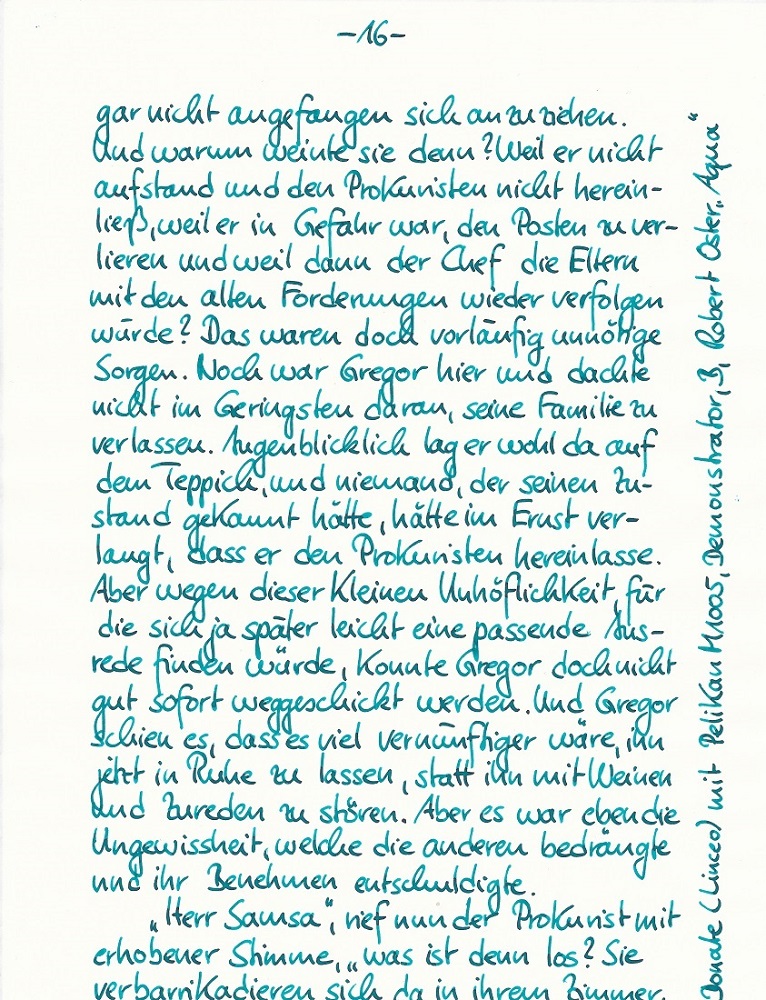 -16-
gar nicht angefangen sich anzuziehen.
Und warum weinte sie denn? Weil er nicht
aufstand und den Prokuristen nicht herein-
ließ, weil er in Gefahr war, den Posten zu ver-
lieren und weil dann der Chef die Eltern
mit den alten Forderungen wieder verfolgen
würde? Das waren doch vorläufig unnötige
Sorgen. Noch war Gregor hier und dachte
nicht im Geringsten daran, seine Familie zu
verlassen. Augenblicklich lag er wohl da auf
dem Teppich, und niemand, der seinen Zu-
stand gekannt hätte, hätte im Ernst ver-
langt, dass er den Prokuristen hereinlasse.
Aber wegen dieser kleinen Unhöflichkeit, für
die sich ja später leicht eine passende Aus-
rede finden würde, konnte Gregor doch nicht
gut sofort weggeschickt werden. Und Gregor
schien es, dass es viel vernünftiger wäre, ihn
jetzt in Ruhe zu lassen, statt ihn mit Weinen
und Zureden zu stören. Aber es war eben die
Ungewissheit, welche die anderen bedrängte
und ihr Benehmen entschuldigte.
„Herr Samsa“, rief nun der Prokurist mit
erhobener Stimme, „was ist denn los? Sie
verbarrikadieren sich da in ihrem Zimmer,
Donate (Linceo) mit Pelikan M1005, Demonstrator, B, Robert Oster „Aqua“